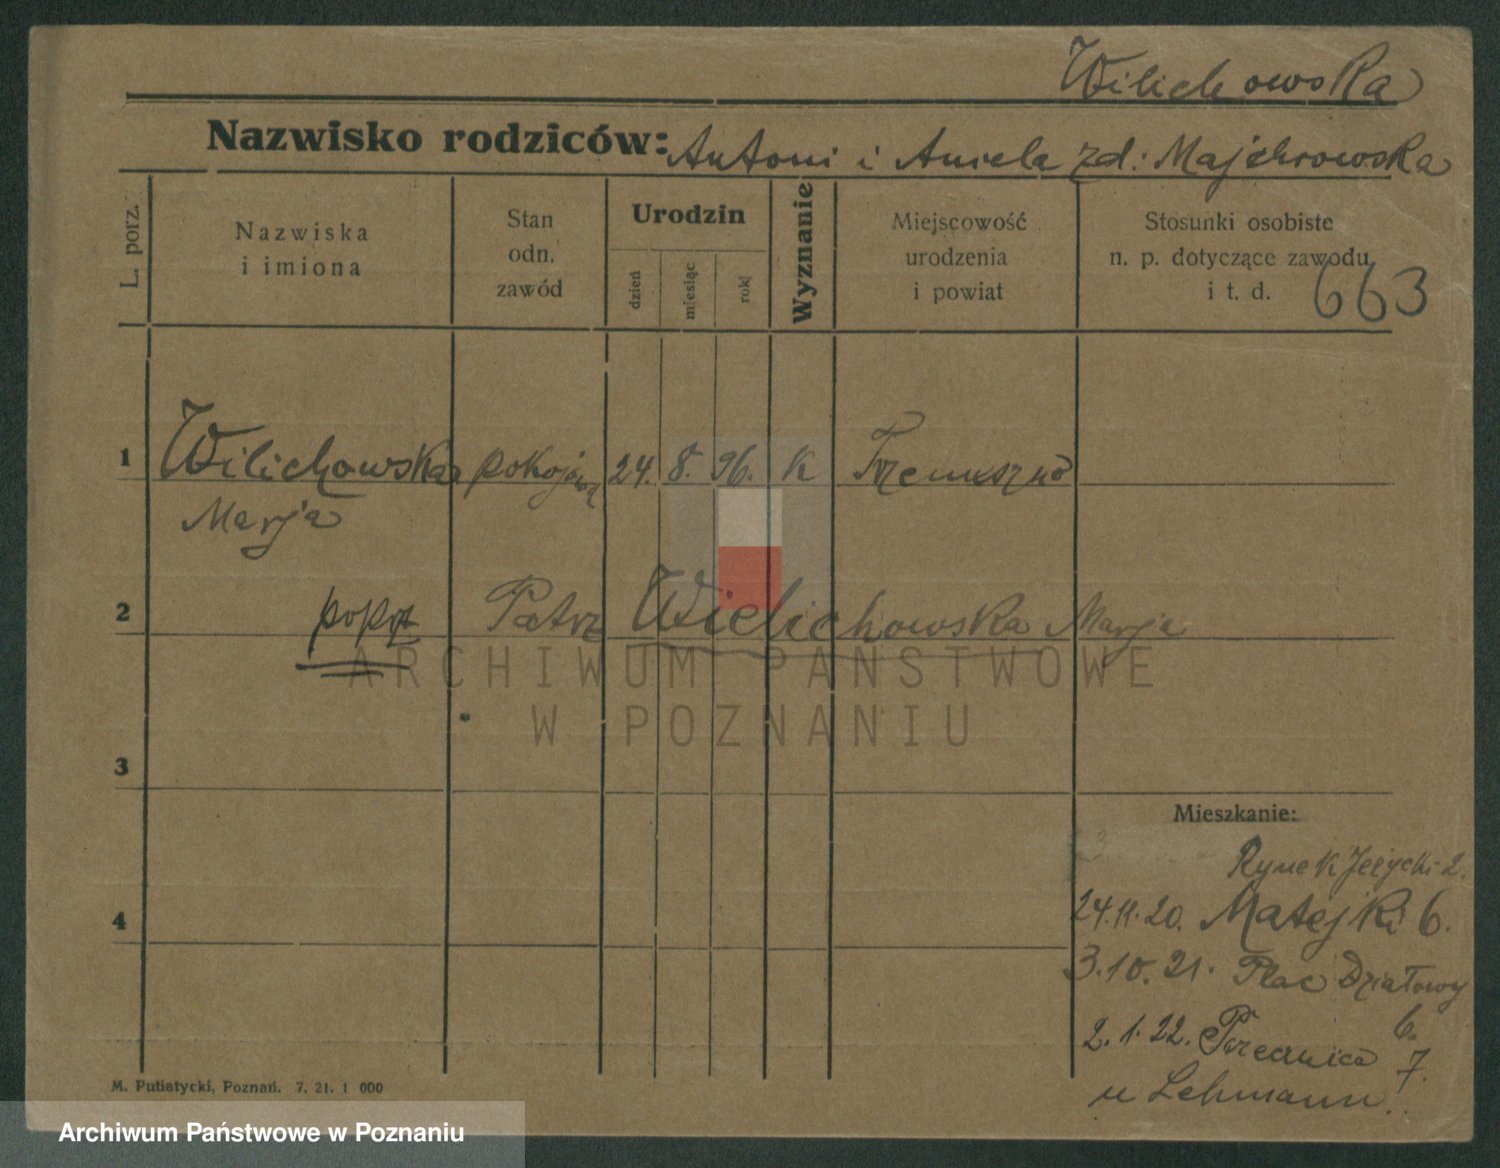 Wilichowska
Nazwisko rodziców: Antoni i Aniela zd: Majchrowska
L. porz.
Nazwiska
i imiona
Stan
odn.
zawód
Urodzin
dzień
miesiąc
rok
Wyznanie
Miejscowość
urodzenia
i powiat
Stosunki osobiste
n. p. dotyczące zawodu
i t. d.
663
1 Wilichowska pokojową 24. 8. 96. K Trzemeszno
Marja
2 Patrz Wielichowska Marja
ARCHIWUM PAŃSTWOWE
W POZNANIU
3
Mieszkanie:
Rynek Jeżycki 2.
4
24.11.20. Matejki 6.
3.10.21. Plac Działowy
6.
2.1.22. 7.
u Lehmann.
M. Putiatycki, Poznań. 7. 21. 1 000
Archiwum Państwowe w Poznaniu